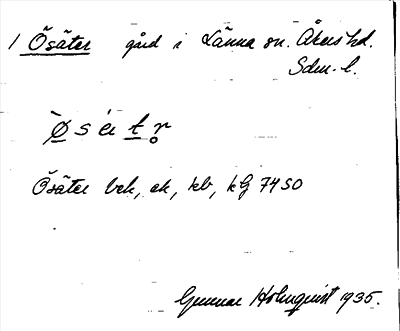 1 Ösäter gård i Länna sn. Åkers hd.
Sdm. l.
Øsätr
Ösäter bek, ek, kb, kG 74 SO
Gunnar Holmquist 1935.